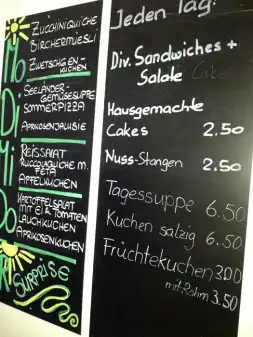 Zucchiniquiche
Birchermüesli
Mo
Zwetschgen-
kuchen
Seeländer-
Gemüsesuppe
Di
Sommerpizza
Aprikosenjalusie
Reissalat
Mi
Ruccolaquiche m.
Feta
Apfelkuchen
Kartoffelsalat
mit Ei & Tomaten
Do
Lauchkuchen
Aprikosenkuchen
Fr
Surprise
Jeden Tag:
Div. Sandwiches +
Salate
Hausgemachte
Cakes 2.50
Nuss-Stangen 2.50
Tagessuppe 6.50
Kuchen salzig 6.50
Früchtekuchen 3.00
mit Rahm 3.50